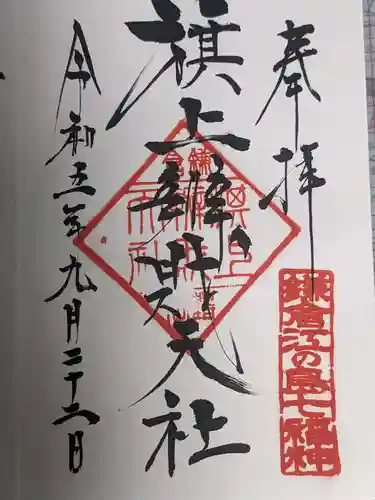 奉拝
鎌倉江の島七福神
旗上辨財天社
令和五年九月二十二日